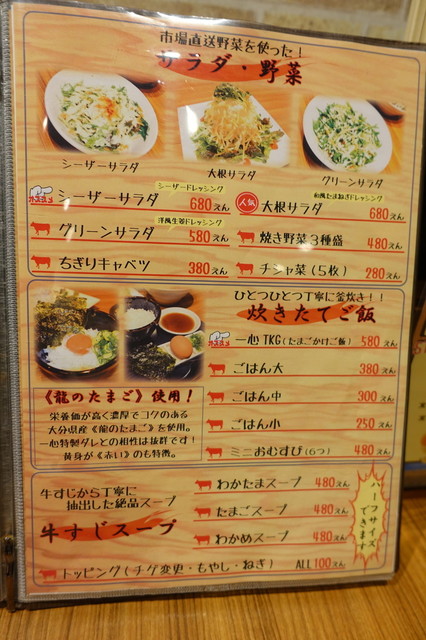 市場直送野菜を使った!
サラダ・野菜
シーザーサラダ
大根サラダ
グリーンサラダ
シーザードレッシング
オススメ シーザーサラダ 680えん
和風たまねぎドレッシング
人気 大根サラダ 680えん
洋風生姜ドレッシング
グリーンサラダ 580えん
焼き野菜3種盛 480えん
ちぎりキャベツ 380えん
チシャ菜(5枚) 280えん
ひとつひとつ丁寧に釜炊き!!
炊きたてご飯
オススメ 一心TKG(たまごかけご飯) 580えん
ごはん大 380えん
ごはん中 300えん
ごはん小 250えん
ミニおむすび(6つ) 480えん
《龍のたまご》使用!
栄養価が高く濃厚でコクのある
大分県産《龍のたまご》を使用。
一心特製ダレとの相性は抜群です!
黄身が《赤い》のも特徴。
牛すじから丁寧に
抽出した絶品スープ
牛すじスープ
わかたまスープ 480えん
たまごスープ 480えん
わかめスープ 480えん
ハーフサイズ
できます
トッピング(チゲ変更・もやし・ねぎ) ALL100えん